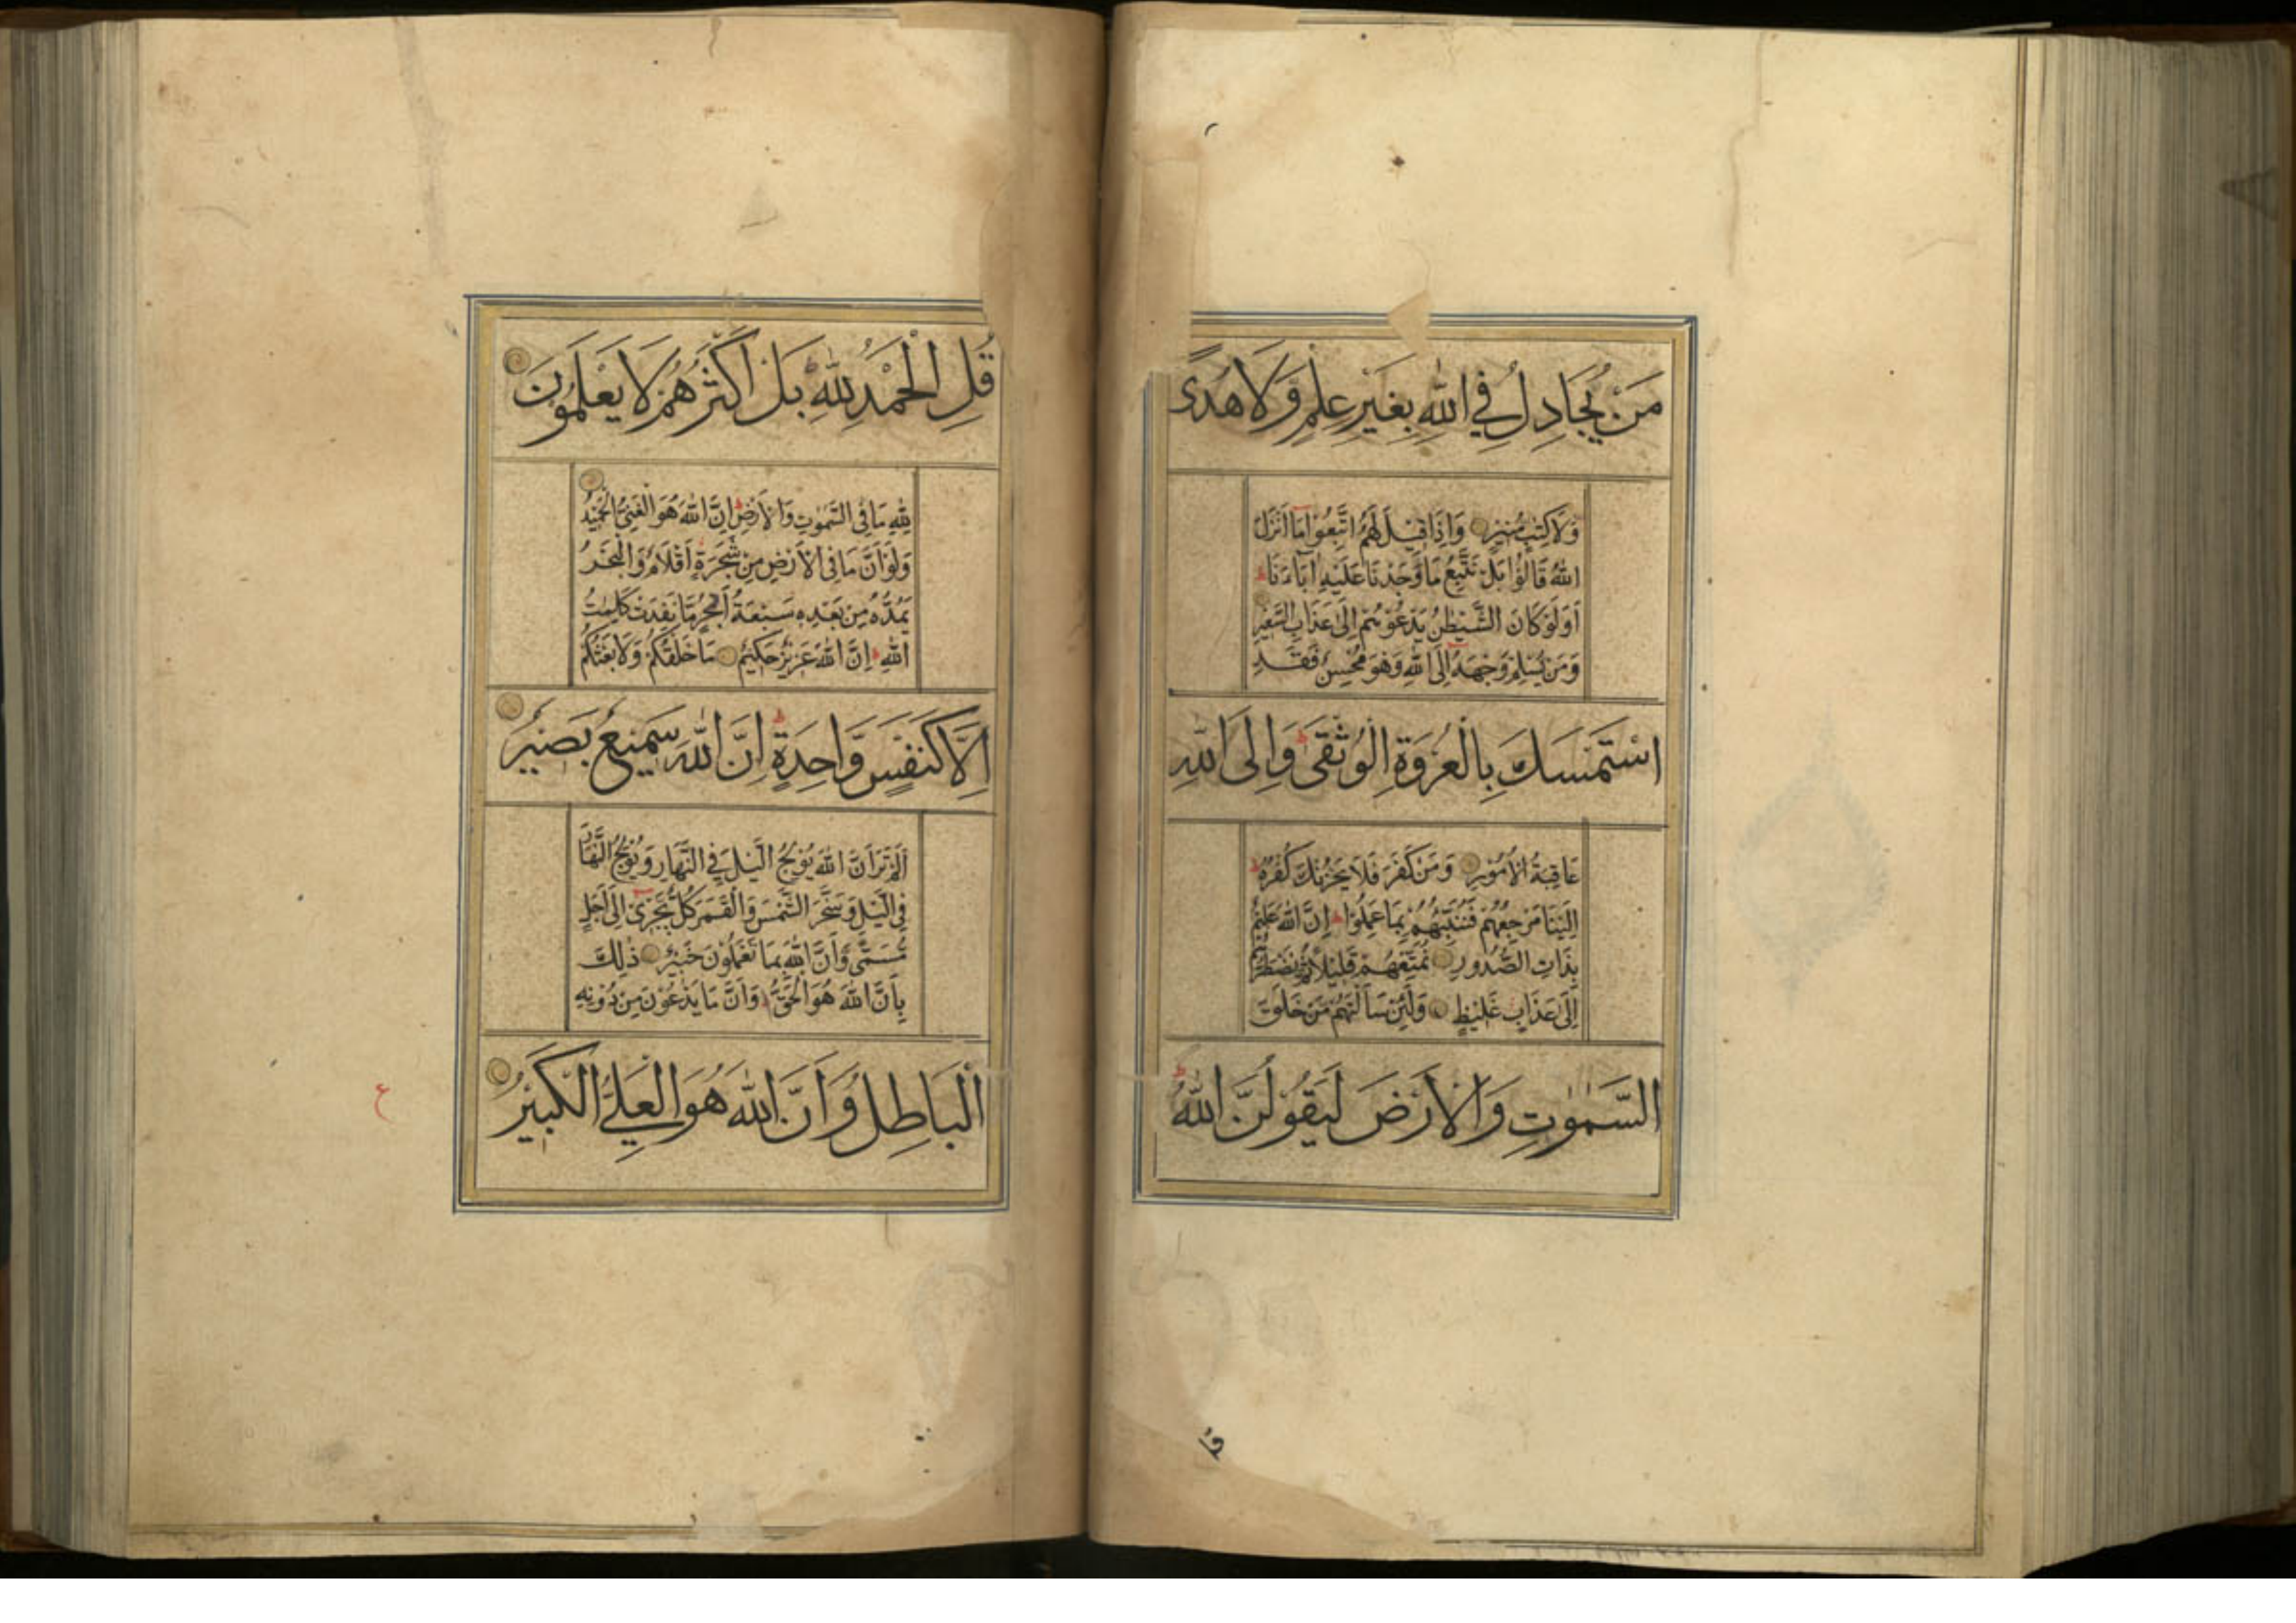 مَنْ يُجَادِلُ فِي اللّٰهِ بِغَيْرِ عِلْمٍ وَلَا هُدًى
وَلَا كِتٰبٍ مُنِيرٍ وَاِذَا قِيلَ لَهُمُ اتَّبِعُوا مَا اَنْزَلَ
اللّٰهُ قَالُوا بَلْ نَتَّبِعُ مَا وَجَدْنَا عَلَيْهِ اٰبَاءَنَا ط
اَوَلَوْ كَانَ الشَّيْطٰنُ يَدْعُوهُمْ اِلٰى عَذَابِ السَّعِيرِ
وَمَنْ يُسْلِمْ وَجْهَهُ اِلَى اللّٰهِ وَهُوَ مُحْسِنٌ فَقَدِ
اسْتَمْسَكَ بِالْعُرْوَةِ الْوُثْقٰى ط وَاِلَى اللّٰهِ
عَاقِبَةُ الْاُمُورِ وَمَنْ كَفَرَ فَلَا يَحْزُنْكَ كُفْرُهُ ط
اِلَيْنَا مَرْجِعُهُمْ فَنُنَبِّئُهُمْ بِمَا عَمِلُوا ط اِنَّ اللّٰهَ عَلِيمٌ
بِذَاتِ الصُّدُورِ نُمَتِّعُهُمْ قَلِيلًا ثُمَّ نَضْطَرُّهُمْ
اِلٰى عَذَابٍ غَلِيظٍ وَلَئِنْ سَاَلْتَهُمْ مَنْ خَلَقَ
السَّمٰوٰتِ وَالْاَرْضَ لَيَقُولُنَّ اللّٰهُ ط
قُلِ الْحَمْدُ لِلّٰهِ ط بَلْ اَكْثَرُهُمْ لَا يَعْلَمُونَ
لِلّٰهِ مَا فِي السَّمٰوٰتِ وَالْاَرْضِ ط اِنَّ اللّٰهَ هُوَ الْغَنِيُّ الْحَمِيدُ
وَلَوْ اَنَّ مَا فِي الْاَرْضِ مِنْ شَجَرَةٍ اَقْلَامٌ وَالْبَحْرُ
يَمُدُّهُ مِنْ بَعْدِهِ سَبْعَةُ اَبْحُرٍ مَا نَفِدَتْ كَلِمٰتُ
اللّٰهِ ط اِنَّ اللّٰهَ عَزِيزٌ حَكِيمٌ مَا خَلْقُكُمْ وَلَا بَعْثُكُمْ
اِلَّا كَنَفْسٍ وَاحِدَةٍ ط اِنَّ اللّٰهَ سَمِيعٌ بَصِيرٌ
اَلَمْ تَرَ اَنَّ اللّٰهَ يُولِجُ الَّيْلَ فِي النَّهَارِ وَيُولِجُ النَّهَارَ
فِي الَّيْلِ وَسَخَّرَ الشَّمْسَ وَالْقَمَرَ كُلٌّ يَجْرِي اِلٰى اَجَلٍ
مُسَمًّى وَاَنَّ اللّٰهَ بِمَا تَعْمَلُونَ خَبِيرٌ ذٰلِكَ
بِاَنَّ اللّٰهَ هُوَ الْحَقُّ وَاَنَّ مَا يَدْعُونَ مِنْ دُونِهِ
الْبَاطِلُ وَاَنَّ اللّٰهَ هُوَ الْعَلِيُّ الْكَبِيرُ
ع